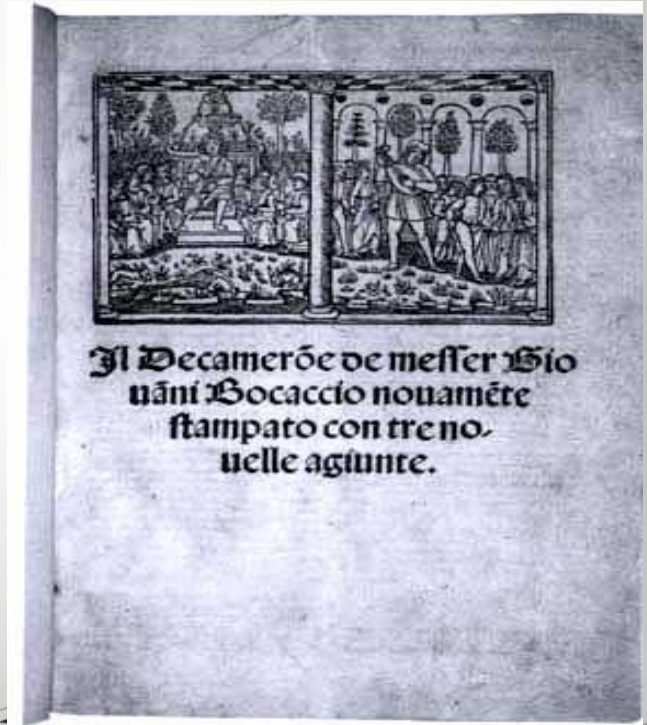 Il Decamerõe de messer Gio
uãni Bocaccio nouamẽte
stampato con tre no-
uelle agiunte.